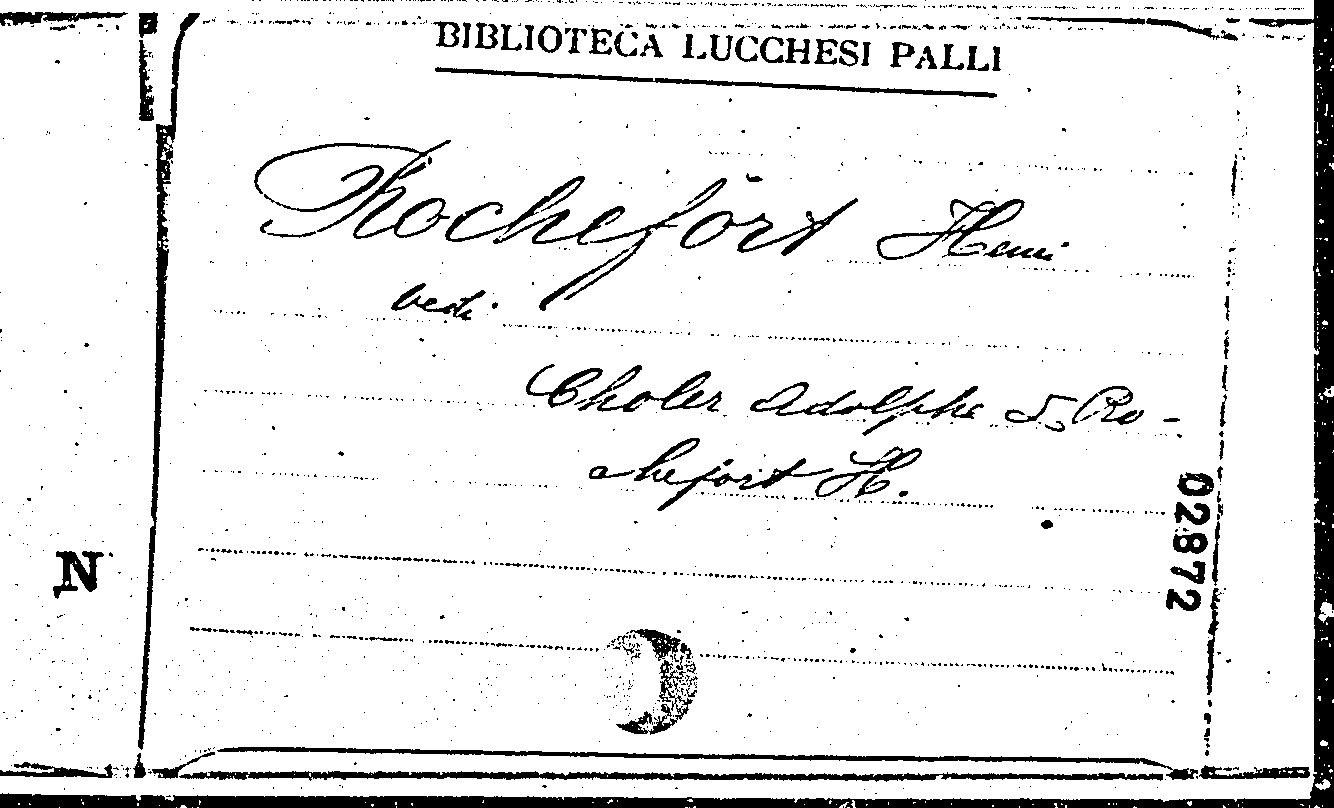 BIBLIOTECA LUCCHESI PALLI
Rochefort Henri
vedi
Choler Adolphe & Ro-
chefort H.
02872
N